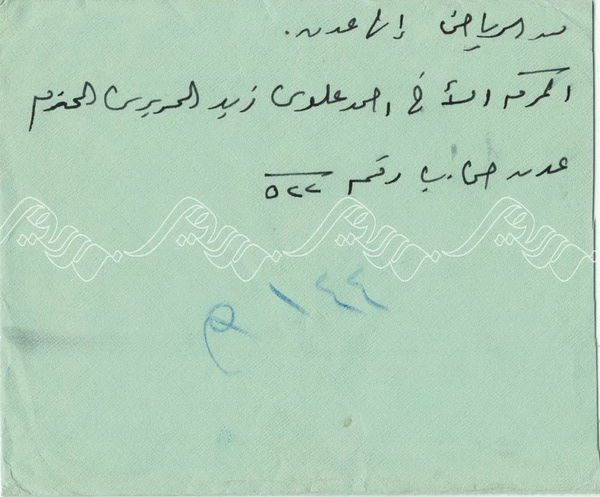 من الرياض إلى عدن.
المكرم الأخ احمد علوي زيد الحريري المحترم
عدن ص.ب رقم ٥٢٢
١٤٤